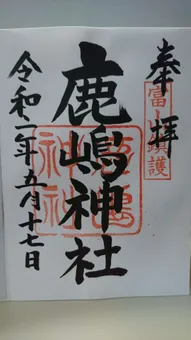 奉拝
富山鎮護
鹿嶋神社
令和二年五月十七日